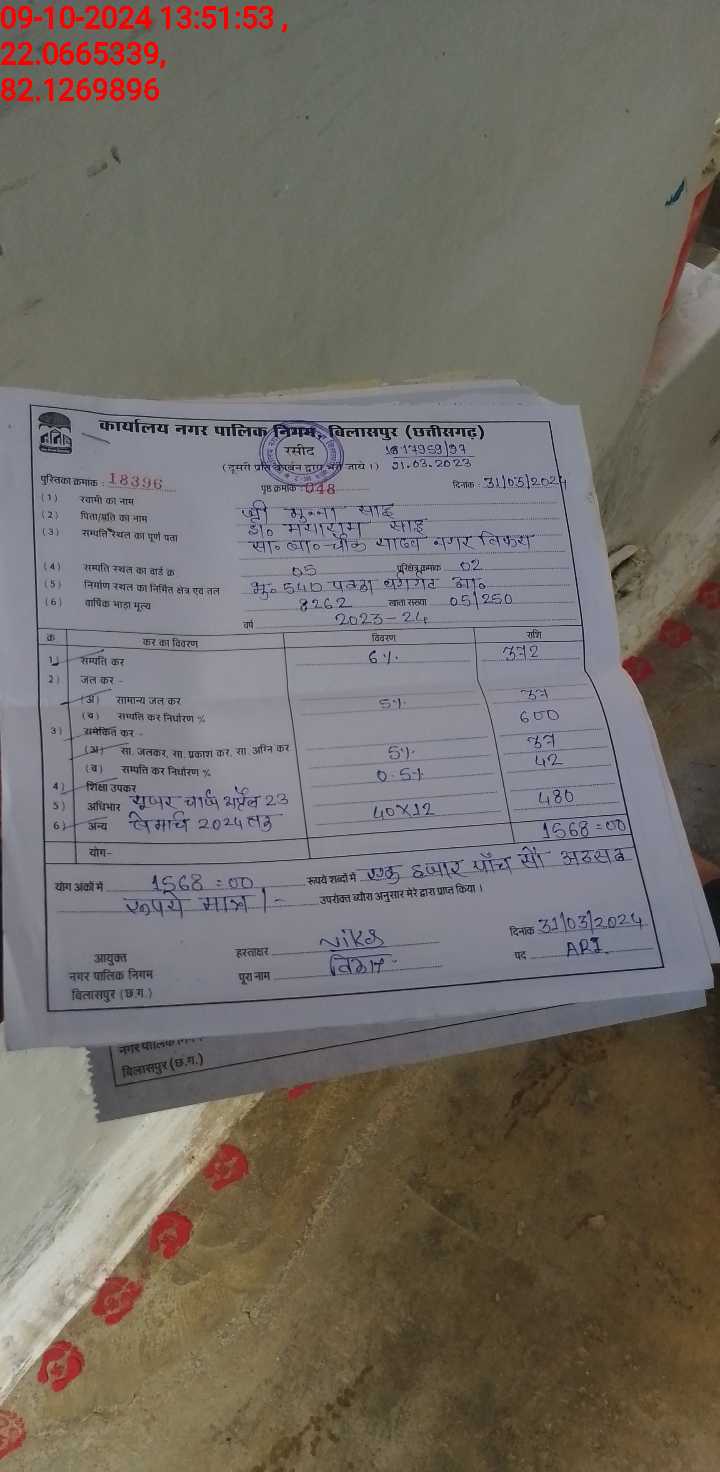 09-10-2024 13:51:53 ,
22.0665339,
82.1269896
कार्यालय नगर पालिक निगम, बिलासपुर (छत्तीसगढ़)
रसीद
(दूसरी प्रति कार्बन द्वारा भरी जाये ।) 21.03.2023
पुस्तिका क्रमांक : 18396 पृष्ठ क्रमांक 048 दिनांक : 31/03/2024
(1) स्वामी का नाम श्री मुन्ना साहू
(2) पिता/पति का नाम साहू
(3) सम्पत्ति स्थल का पूर्ण पता चौक यादव नगर
(4) सम्पत्ति स्थल का वार्ड क्र 05 परिक्षेत्र क्रमांक 02
(5) निर्माण स्थल का निर्मित क्षेत्र एवं तल भू० 540 पक्का
(6) वार्षिक भाड़ा मूल्य 8262 खाता संख्या 05/250
वर्ष 2023-24
क्र. कर का विवरण विवरण राशि
1) सम्पत्ति कर 6%. 372
2) जल कर -
(अ) सामान्य जल कर 5%. 37
(ब) सम्पत्ति कर निर्धारण % 600
3) समेकित कर -
(अ) सा. जलकर, सा. प्रकाश कर, सा. अग्नि कर 5%. 37
(ब) सम्पत्ति कर निर्धारण % 0.5% 42
4) शिक्षा उपकर
5) अधिभार यूजर चार्ज अप्रैल 23 40X12 480
6) अन्य मार्च 2024 तक
योग- 1568=00
योग अंकों में 1568=00 रूपये शब्दों में एक हजार पाँच सौ अडसठ
रूपये मात्र/- उपरोक्त ब्यौरा अनुसार मेरे द्वारा प्राप्त किया ।
दिनांक 31/03/2024
आयुक्त हस्ताक्षर पद ARI
नगर पालिक निगम पूरा नाम
बिलासपुर (छ.ग.)
बिलासपुर (छ.ग.)